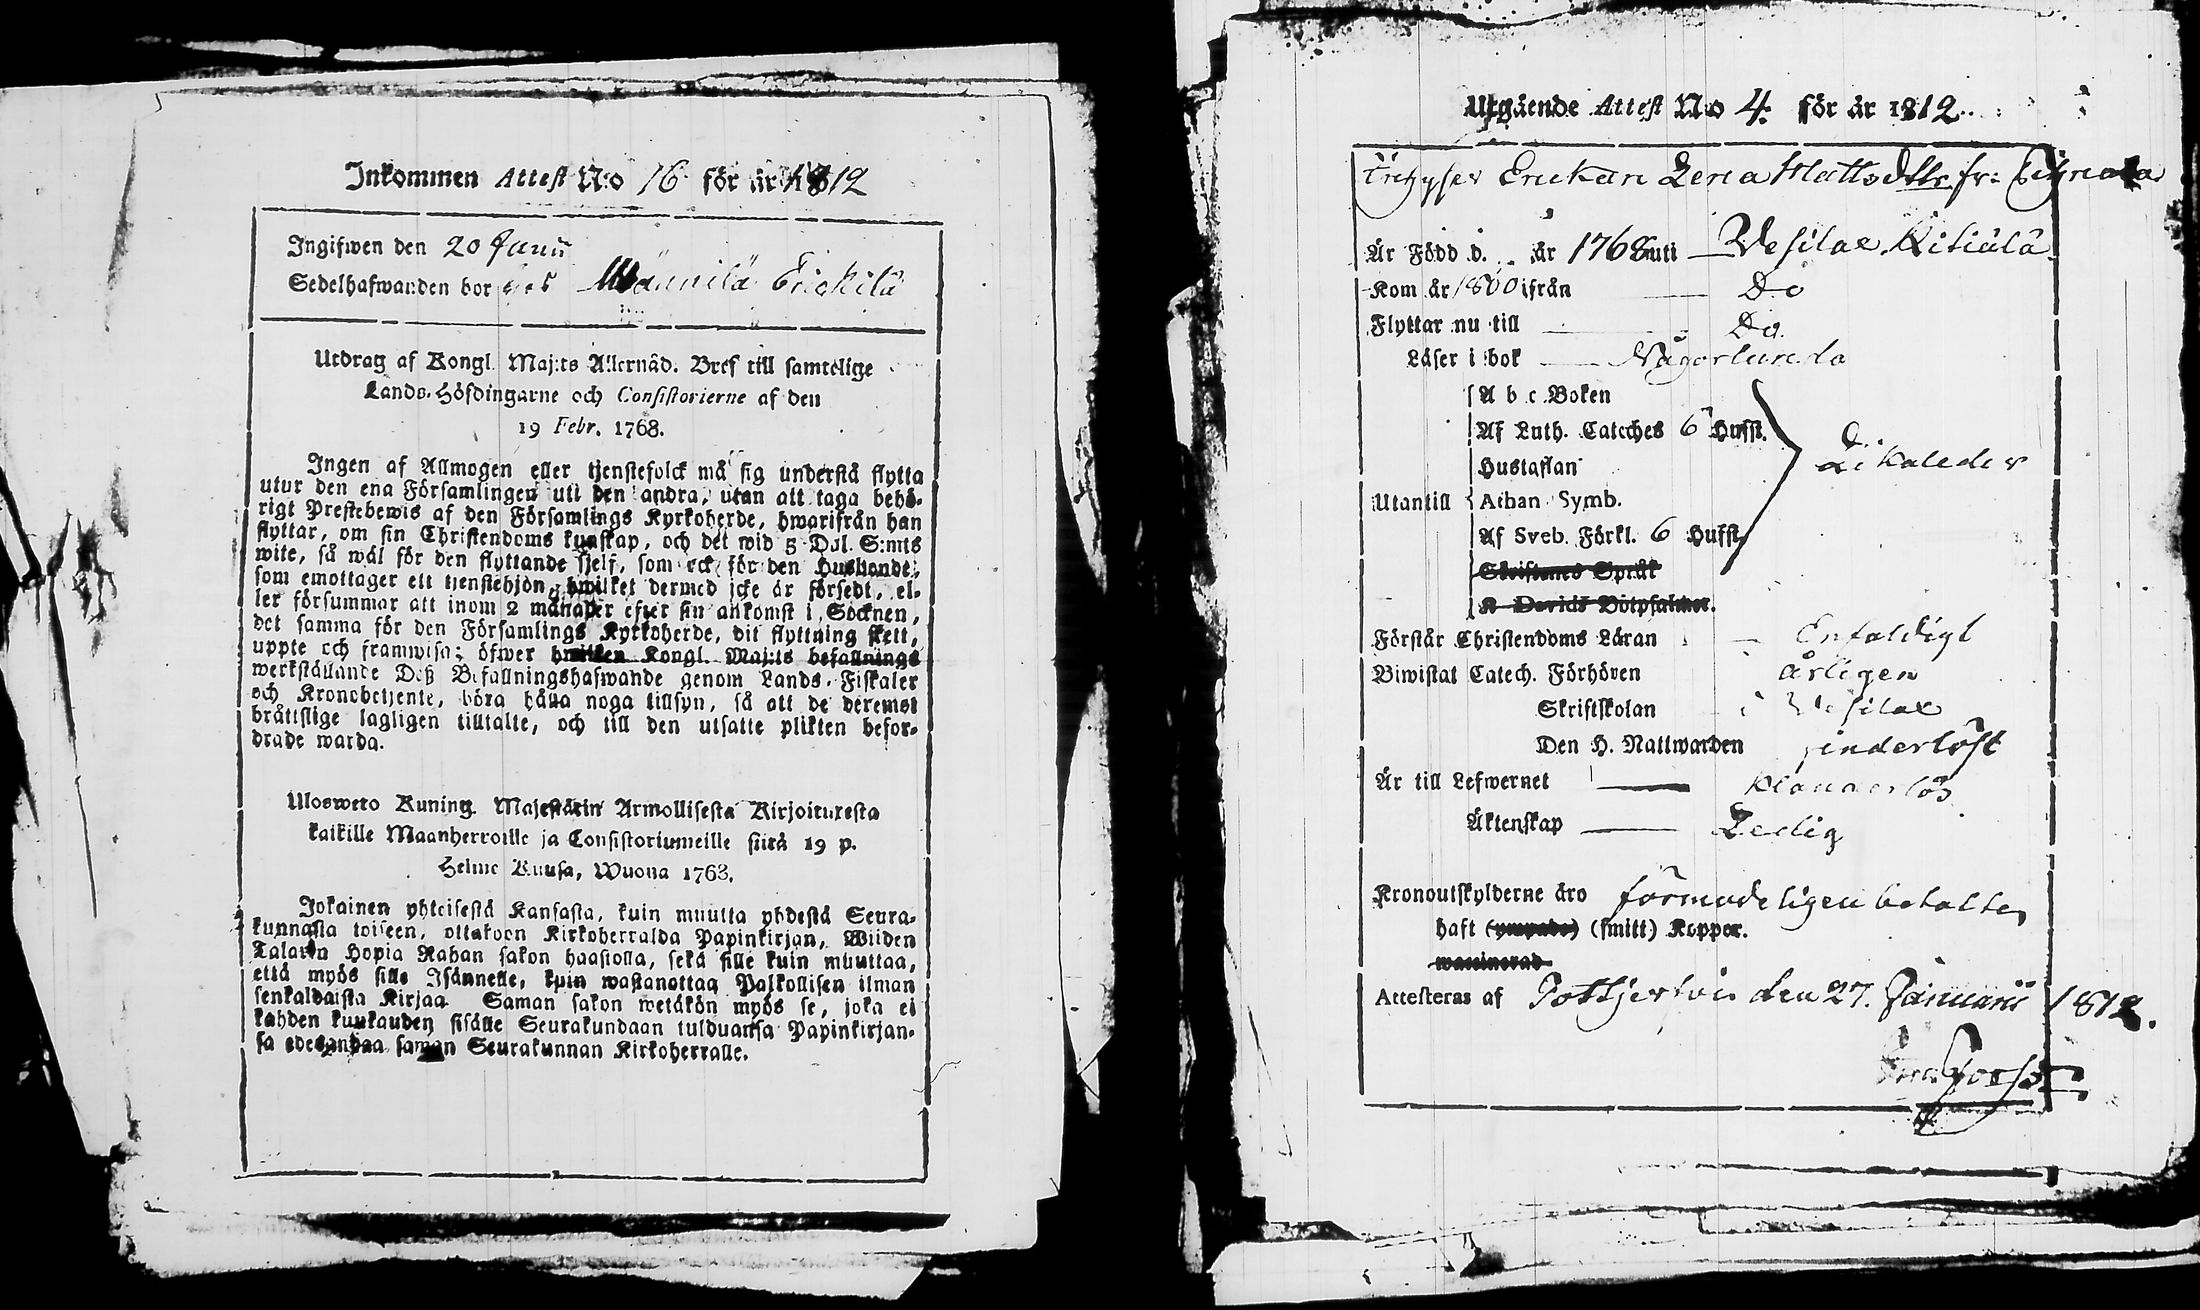 Inkommen Attest N:o 16 för år 1812
Ingifwen den 20 Junii
Sedelhafwanden bor hos Männilä Erickilä
Utdrag af Kongl. Maj:ts Allernåd. Bref till samtelige
Lands-Höfdingarne och Consistorierne af den
19 Febr. 1768.
Ingen af Allmogen eller tjenstefolck må sig understå flytta
utur den ena Församlingen uti den andra, utan att taga behö-
rigt Prestebewis af den Församlings Kyrkoherde, hwarifrån han
flyttar, om sin Christendoms kunskap, och det wid 5 Dal. S:mts
wite, så wäl för den flyttande sjelf, som ock för den Husbonde,
som emottager ett tienstehjon, hwilket dermed icke är försedt, el-
ler försummar att inom 2 månader efter sin ankomst i Socknen,
det samma för den Församlings Kyrkoherde, dit flyttning skett,
uppte och framwisa; öfwer hwilken Kongl. Maj:ts befallnings
werkställande Deß Befallningshafwande genom Lands-Fiskaler
och Kronobetjente, böra hålla noga tillsyn, så att de deremot
bråttslige lagligen tilltalte, och till den utsatte plikten befor-
drade warda.
Ulosweto Kuning. Majestätin Armollisesta Kirjoituxesta
kaikille Maanherroille ja Consistoriumeille siitä 19 p.
Helme Kuusa, Wuona 1763.
Jokainen yhteisestä Kansasta, kuin muutta yhdestä Seura-
kunnasta toiseen, ottakoon Kirkoherralda Papinkirjan, Wiiden
Talarin Hopia Rahan sakon haastolla, sekä sille kuin muuttaa,
että myös sille Isännelle, kuin wastanottaa Palkollisen ilman
senkaldaista Kirjaa. Saman sakon wetäkön myös se, joka ei
kahden kuukauden sisälle Seurakundaan tulduansa Papinkirjan-
sa edesandaa saman Seurakunnan Kirkoherralle.
Utgående Attest No 4. för år 1812.
Enckan Lena Mattsdttr fr:
Är Född d. år 1768 uti Wesilax Kitiälä
Kom år 1800 ifrån Do
Flyttar nu till Do
Läser i bok Någorlunda
A b c Boken
Af Luth. Cateches 6 Hufst.
Hustaflan
Likaledes
Utantill Athan Symb.
Af Sveb. Förkl. 6 Hufst.
Skriftenes Språk
K Davids Botpsalmer.
Förstår Christendoms Läran Enfaldigt
Biwistat Catech. Förhören årligen
Skriftskolan i Wesilax
Den H. Nattwarden
Är till Lefwernet klanderlös
Äktenskap Ledig
Kronoutskylderne äro förmodeligen betalte
haft (ympade) (smitt) Koppor.
waccinerad
Attesteras af den 27. Januarii 1812.